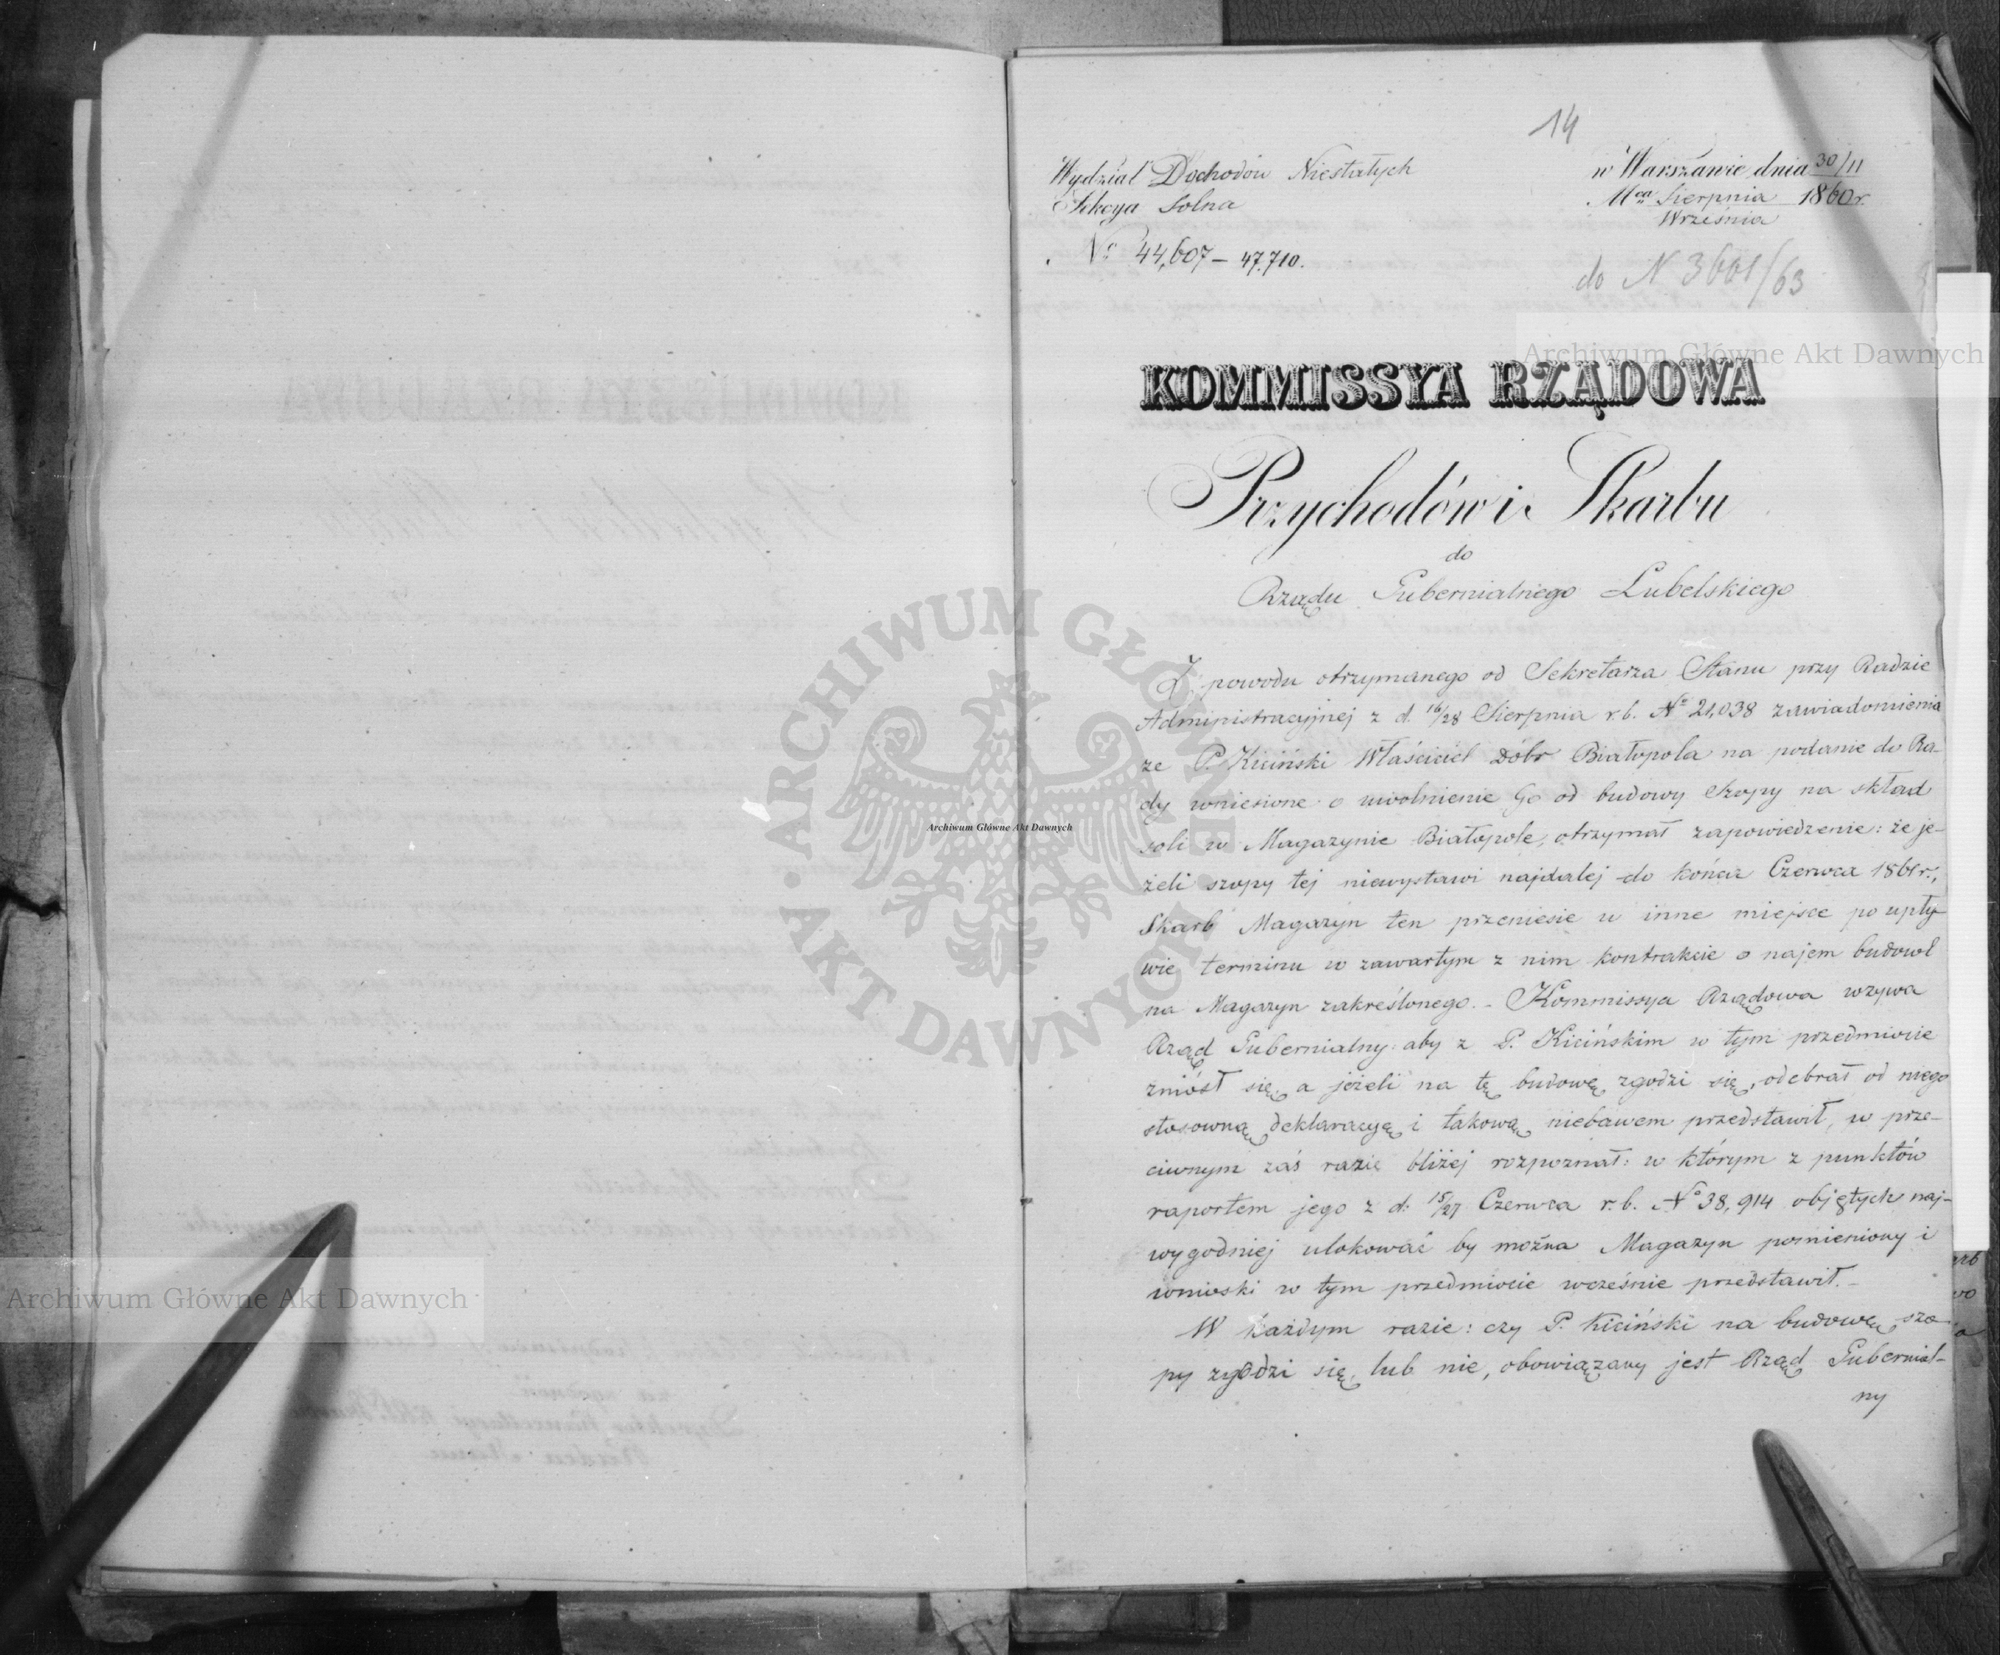 14
Wydział Dochodów Niestałych
Sekcya Solna
№ 44,607 – 47.710.
w Warszawie dnia 30/11
Mca Sierpnia 1860 r.
Września
do N 3661/63
KOMMISSYA RZĄDOWA
Przychodów i Skarbu
do
Rządu Gubernialnego Lubelskiego
Z powodu otrzymanego od Sekretarza Stanu przy Radzie
Administracyjnej z d. 16/28 Sierpnia r. b. № 21,038 zawiadomienia
że P. Kiciński Właściciel Dóbr Białopola na podanie do Ra-
dy wniesione o uwolnienie Go od budowy Szopy na skład
soli w Magazynie Białopole, otrzymał zapowiedzenie: że je-
żeli szopy tej niewystawi najdalej do końca Czerwca 1861 r.,
Skarb Magazyn ten przeniesie w inne miejsce po upły-
wie terminu w zawartym z nim kontrakcie o najem budowl
na Magazyn zakreślonego. – Kommissya Rządowa wzywa
Rząd Gubernialny: aby z P. Kicińskim w tym przedmiocie
zniósł się, a jeżeli na tę budowę zgodzi się, odebrał od niego
stosowną deklaracyę i takową niebawem przedstawił, w prze-
ciwnym zaś razie bliżej rozpoznał: w którym z punktów
raportem jego z d. 15/27 Czerwca r. b. № 38,914 objętych naj-
wygodniej ulokować by można Magazyn pomieniony i
wnioski w tym przedmiocie wcześnie przedstawił. –
W każdym razie: czy P. Kiciński na budowę szo-
py zgodzi się, lub nie, obowiązany jest Rząd Gubernial-
ny
Archiwum Główne Akt Dawnych
ARCHIWUM GŁÓWNE · AKT DAWNYCH ·
Archiwum Główne Akt Dawnych
Archiwum Główne Akt Dawnych